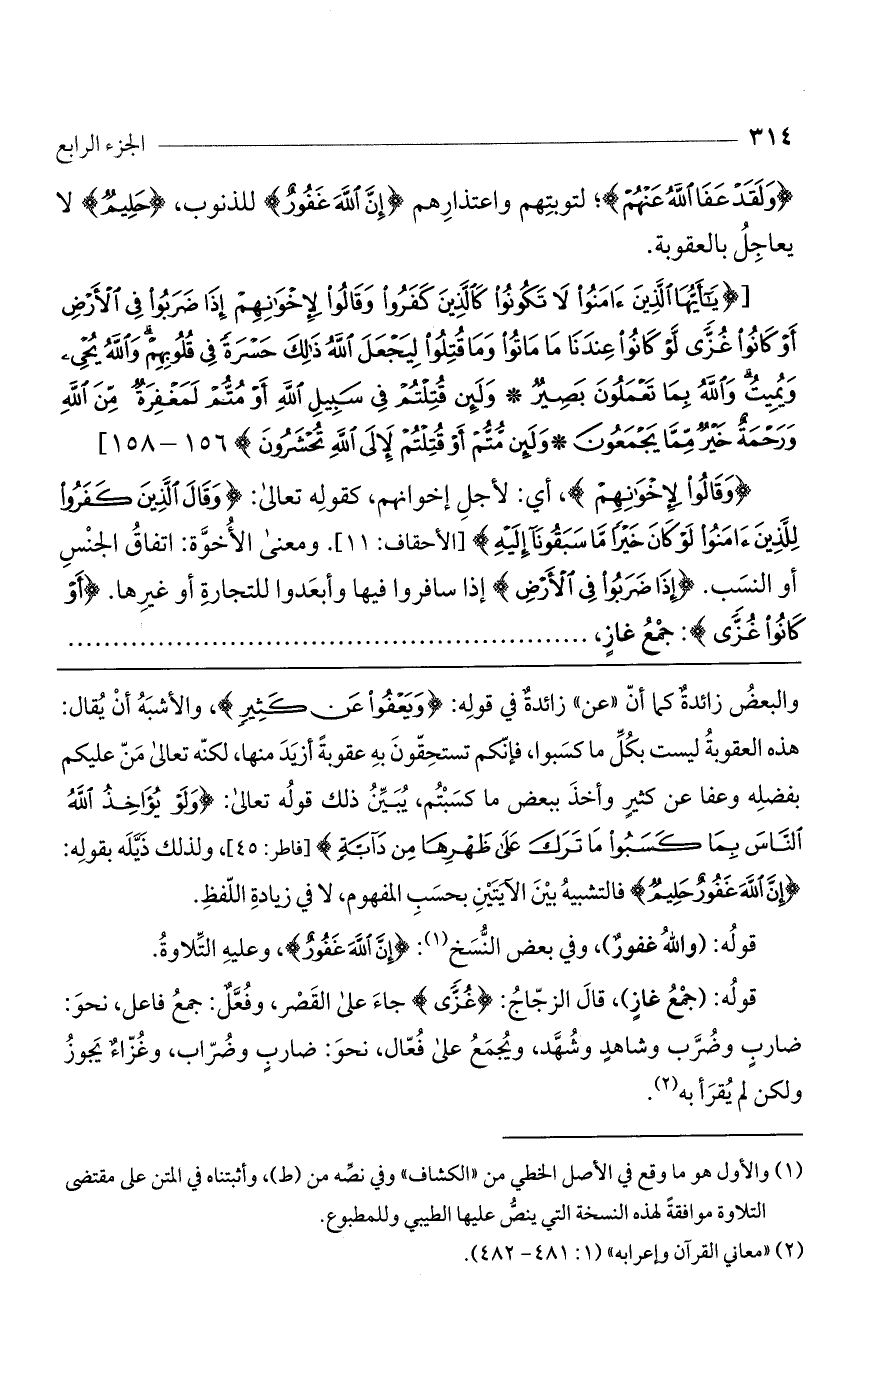 ٣١٤ الجزء الرابع
﴿وَلَقَدْ عَفَا ٱللَّهُ عَنْهُمْ﴾؛ لتوبتِهم واعتذارِهم ﴿إِنَّ ٱللَّهَ غَفُورٌ﴾ للذنوب، ﴿حَلِيمٌ﴾ لا
يعاجِلُ بالعقوبة.
[﴿يَـٰٓأَيُّهَا ٱلَّذِينَ ءَامَنُوا۟ لَا تَكُونُوا۟ كَٱلَّذِينَ كَفَرُوا۟ وَقَالُوا۟ لِإِخْوَٰنِهِمْ إِذَا ضَرَبُوا۟ فِى ٱلْأَرْضِ
أَوْ كَانُوا۟ غُزًّى لَّوْ كَانُوا۟ عِندَنَا مَا مَاتُوا۟ وَمَا قُتِلُوا۟ لِيَجْعَلَ ٱللَّهُ ذَٰلِكَ حَسْرَةً فِى قُلُوبِهِمْ ۗ وَٱللَّهُ يُحْىِۦ
وَيُمِيتُ ۗ وَٱللَّهُ بِمَا تَعْمَلُونَ بَصِيرٌ * وَلَئِن قُتِلْتُمْ فِى سَبِيلِ ٱللَّهِ أَوْ مُتُّمْ لَمَغْفِرَةٌ مِّنَ ٱللَّهِ
وَرَحْمَةٌ خَيْرٌ مِّمَّا يَجْمَعُونَ * وَلَئِن مُّتُّمْ أَوْ قُتِلْتُمْ لَإِلَى ٱللَّهِ تُحْشَرُونَ﴾ ١٥٦ – ١٥٨]
﴿وَقَالُوا۟ لِإِخْوَٰنِهِمْ﴾، أي: لأجلِ إخوانهم، كقولِه تعالىٰ: ﴿وَقَالَ ٱلَّذِينَ كَفَرُوا۟
لِلَّذِينَ ءَامَنُوا۟ لَوْ كَانَ خَيْرًا مَّا سَبَقُونَآ إِلَيْهِ﴾ [الأحقاف: ١١]. ومعنىٰ الأُخوَّة: اتفاقُ الجنْسِ
أو النسَب. ﴿إِذَا ضَرَبُوا۟ فِى ٱلْأَرْضِ﴾ إذا سافروا فيها وأبعَدوا للتجارةِ أو غيرِها. ﴿أَوْ
كَانُوا۟ غُزًّى﴾: جمْعُ غازٍ، ..........................................................
والبعضُ زائدةٌ كما أنّ «عن» زائدةٌ في قولِه: ﴿وَيَعْفُوا۟ عَن كَثِيرٍ﴾، والأشبَهُ أنْ يُقال:
هذه العقوبةُ ليست بكُلِّ ما كسَبوا، فإنّكم تستحِقّونَ بهِ عقوبةً أزيَدَ منها، لكنّه تعالىٰ مَنّ عليكم
بفضلِه وعفا عن كثيرٍ وأخذَ ببعضِ ما كسَبْتُم، يُبَيِّنُ ذلك قولُه تعالىٰ: ﴿وَلَوْ يُؤَاخِذُ ٱللَّهُ
ٱلنَّاسَ بِمَا كَسَبُوا۟ مَا تَرَكَ عَلَىٰ ظَهْرِهَا مِن دَآبَّةٍ﴾ [فاطر: ٤٥]، ولذلك ذَيَّلَه بقولِه:
﴿إِنَّ ٱللَّهَ غَفُورٌ حَلِيمٌ﴾ فالتشبيهُ بيْنَ الآيَتَيْنِ بحسَبِ المفهوم، لا في زيادةِ اللّفظِ.
قولُه: (واللهُ غفورٌ)، وفي بعض النُّسَخ(١): ﴿إِنَّ ٱللَّهَ غَفُورٌ﴾، وعليهِ التِّلاوةُ.
قولُه: (جمْعُ غازٍ)، قالَ الزجّاجُ: ﴿غُزًّى﴾ جاءَ علىٰ القَصْر، وفُعَّلٌ: جمعُ فاعل، نحوَ:
ضاربٍ وضُرَّب وشاهدٍ وشُهَّد، ويُجمَعُ علىٰ فُعّال، نحوَ: ضاربٍ وضُرّاب، وغُزّاءٌ يَجوزُ
ولكن لم يُقرَأ به(٢).
(١) والأول هو ما وقع في الأصل الخطي من «الكشاف» وفي نصِّه من (ط)، وأثبتناه في المتن على مقتضى
التلاوة موافقةً لهذه النسخة التي ينصُّ عليها الطيبي وللمطبوع.
(٢) «معاني القرآن وإعرابه» (١: ٤٨١ – ٤٨٢).